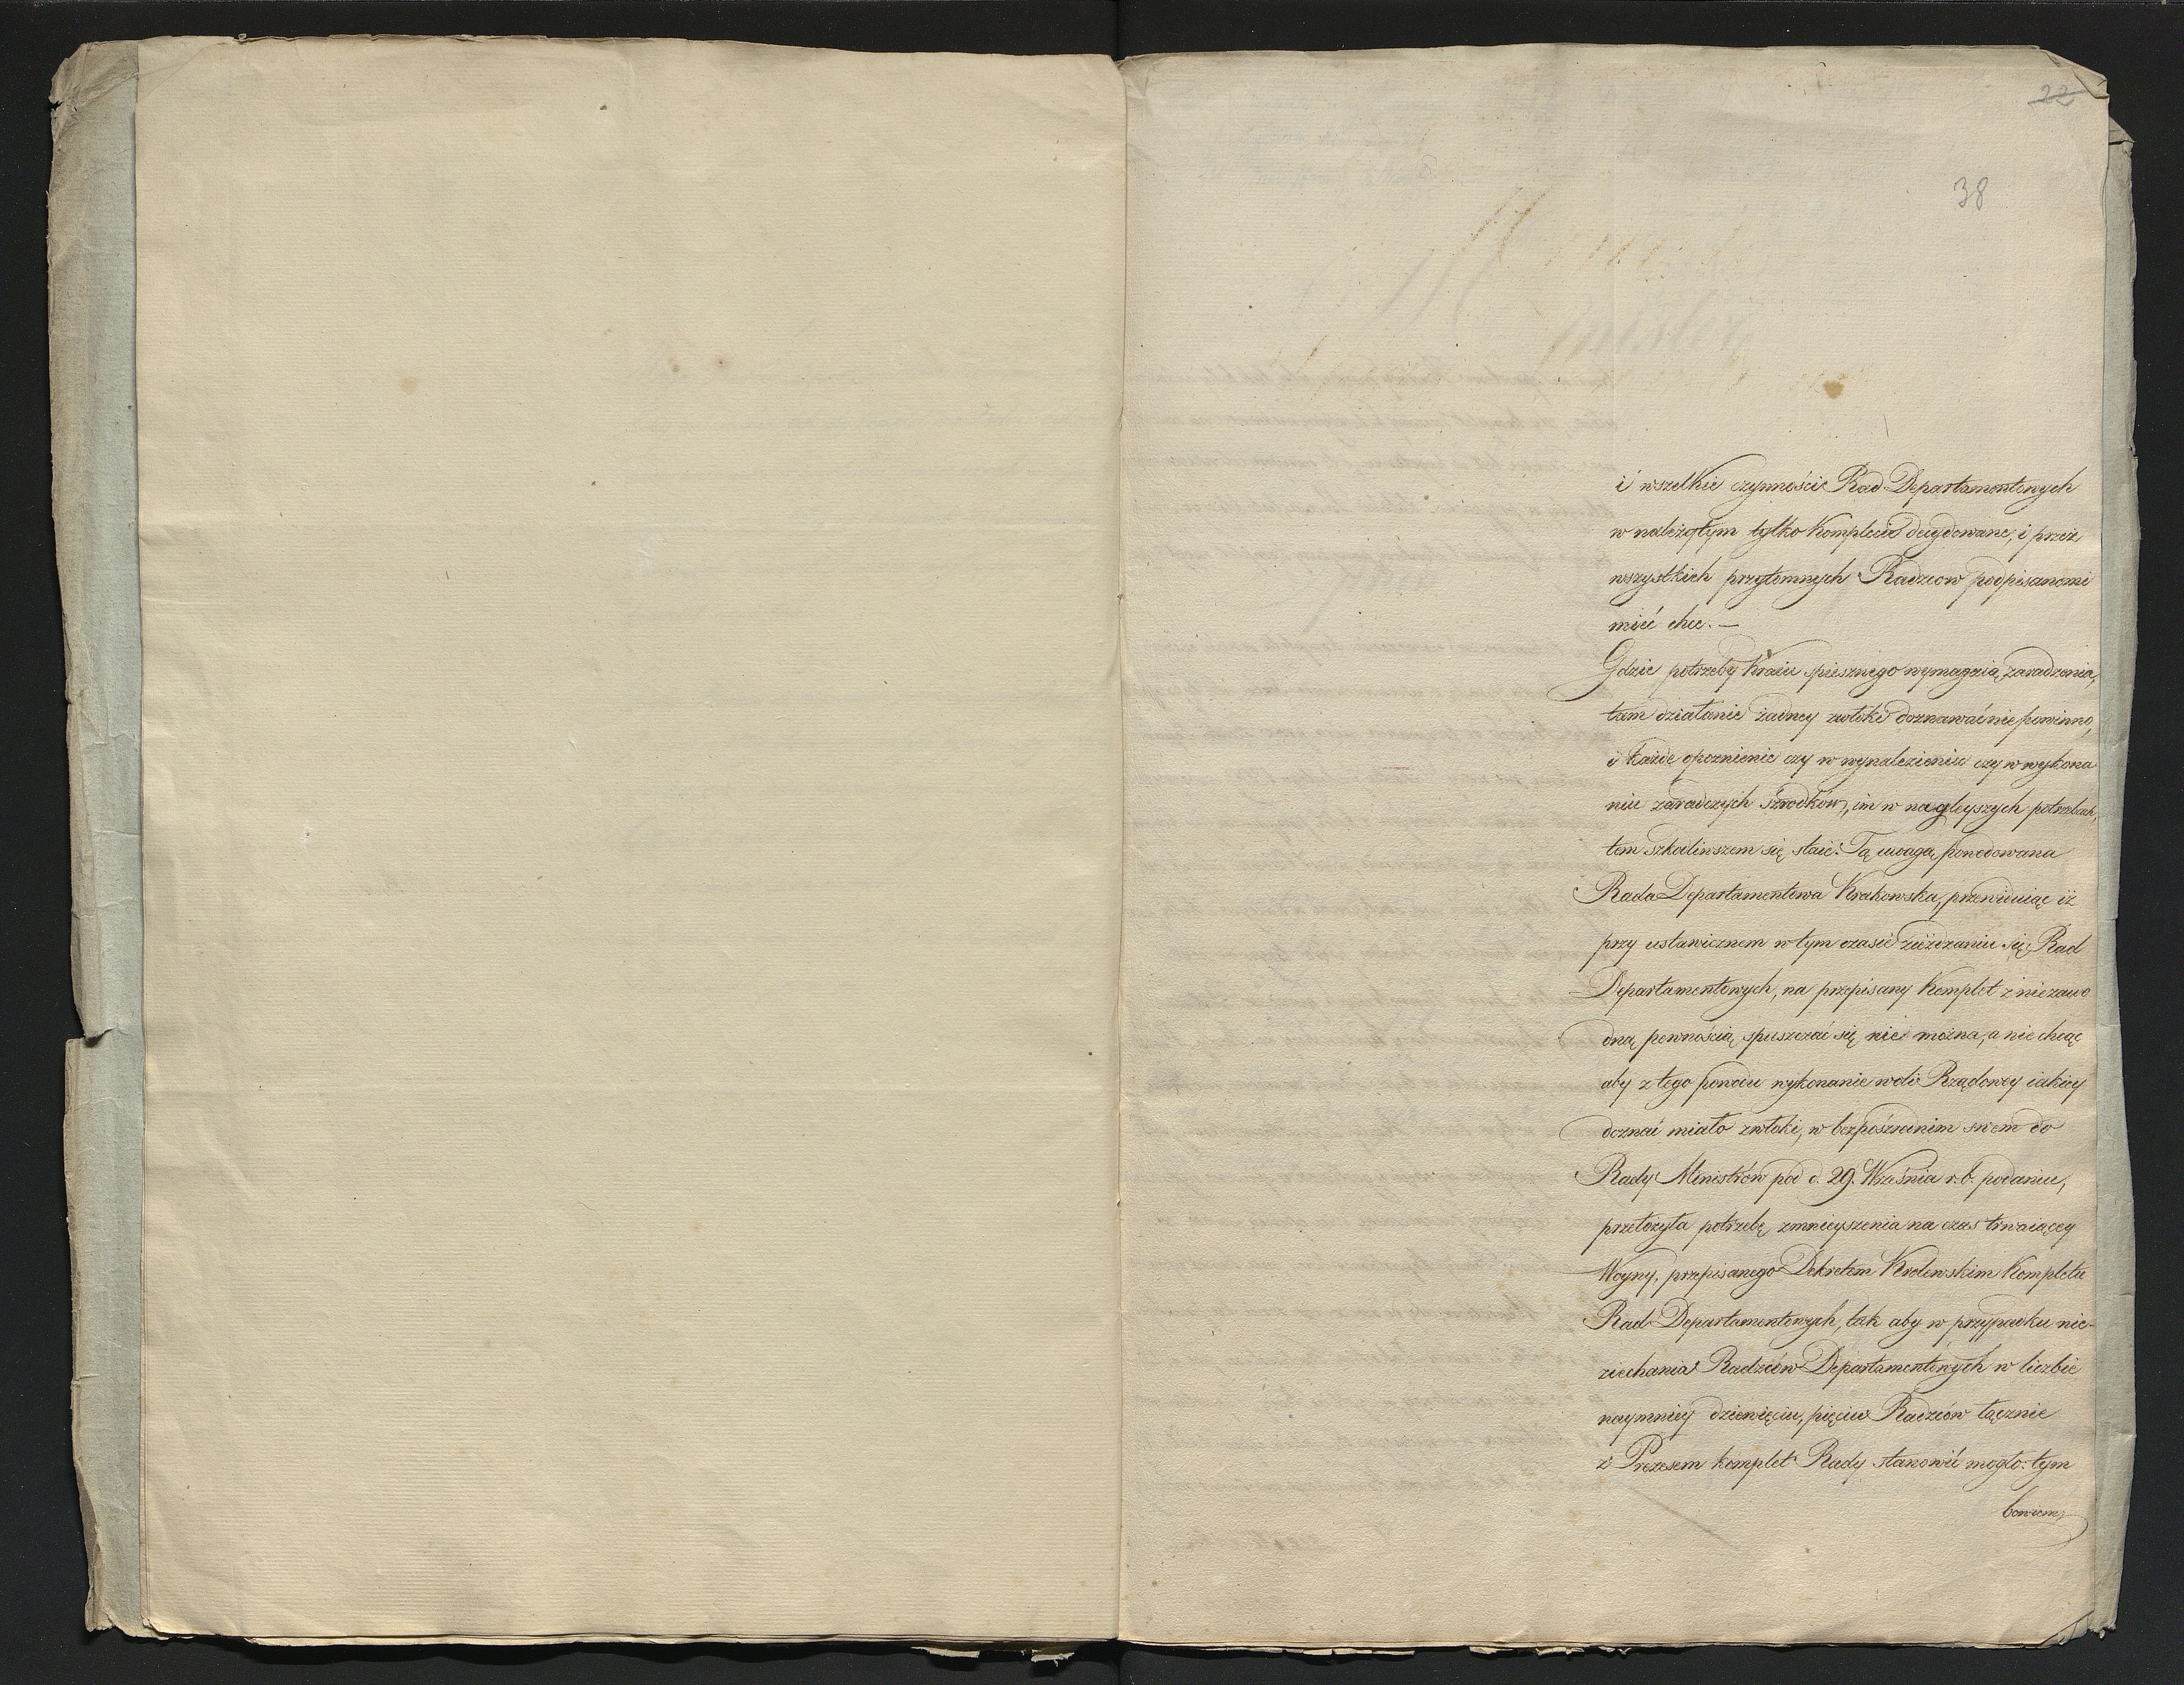 22
38
i wszelkie czynności Rad Departamentowych
w należytym tylko Komplecie decydowane, i przez
wszystkich przytomnych Radzcow podpisanemi
mieć chce. —
Gdzie potrzeby Kraiu spiesznego wymagaią zaradzenia,
tam działanie żadney zwłoki doznawać nie powinno,
i każde opoznienie czy w wynalezieniu czy w wykona
niu zaradczych szrodków, im w nagleyszych potrzebach,
tem szkodliwszem się staie. Tą uwagą powodowana
Rada Departamentowa Krakowska, przewiduiąc iż
przy ustawicznem w tym czasie zieżdzaniu się Rad
Departamentowych, na przepisany Komplet z niezawo
dną pewnością spuszczać się nie można, a nie chcąc
aby z tego powodu wykonanie woli Rządowey iakiey
doznać miało zwłoki, w bezpośzrednim swem do
Rady Ministrów pod d. 29. Września r. b. podaniu,
przełożyła potrzebę zmnieyszenia na czas trwaiącey
Woyny, przepisanego Dekretem Krolewskim Kompletu
Rad Departamentowych, tak aby w przypadku nie-
ziechania Radzców Departamentowych w liczbie
naymniey dziewięciu, pięciu Radzców łącznie
z Prezesem komplet Rady stanowić mogło: tym
bowiem